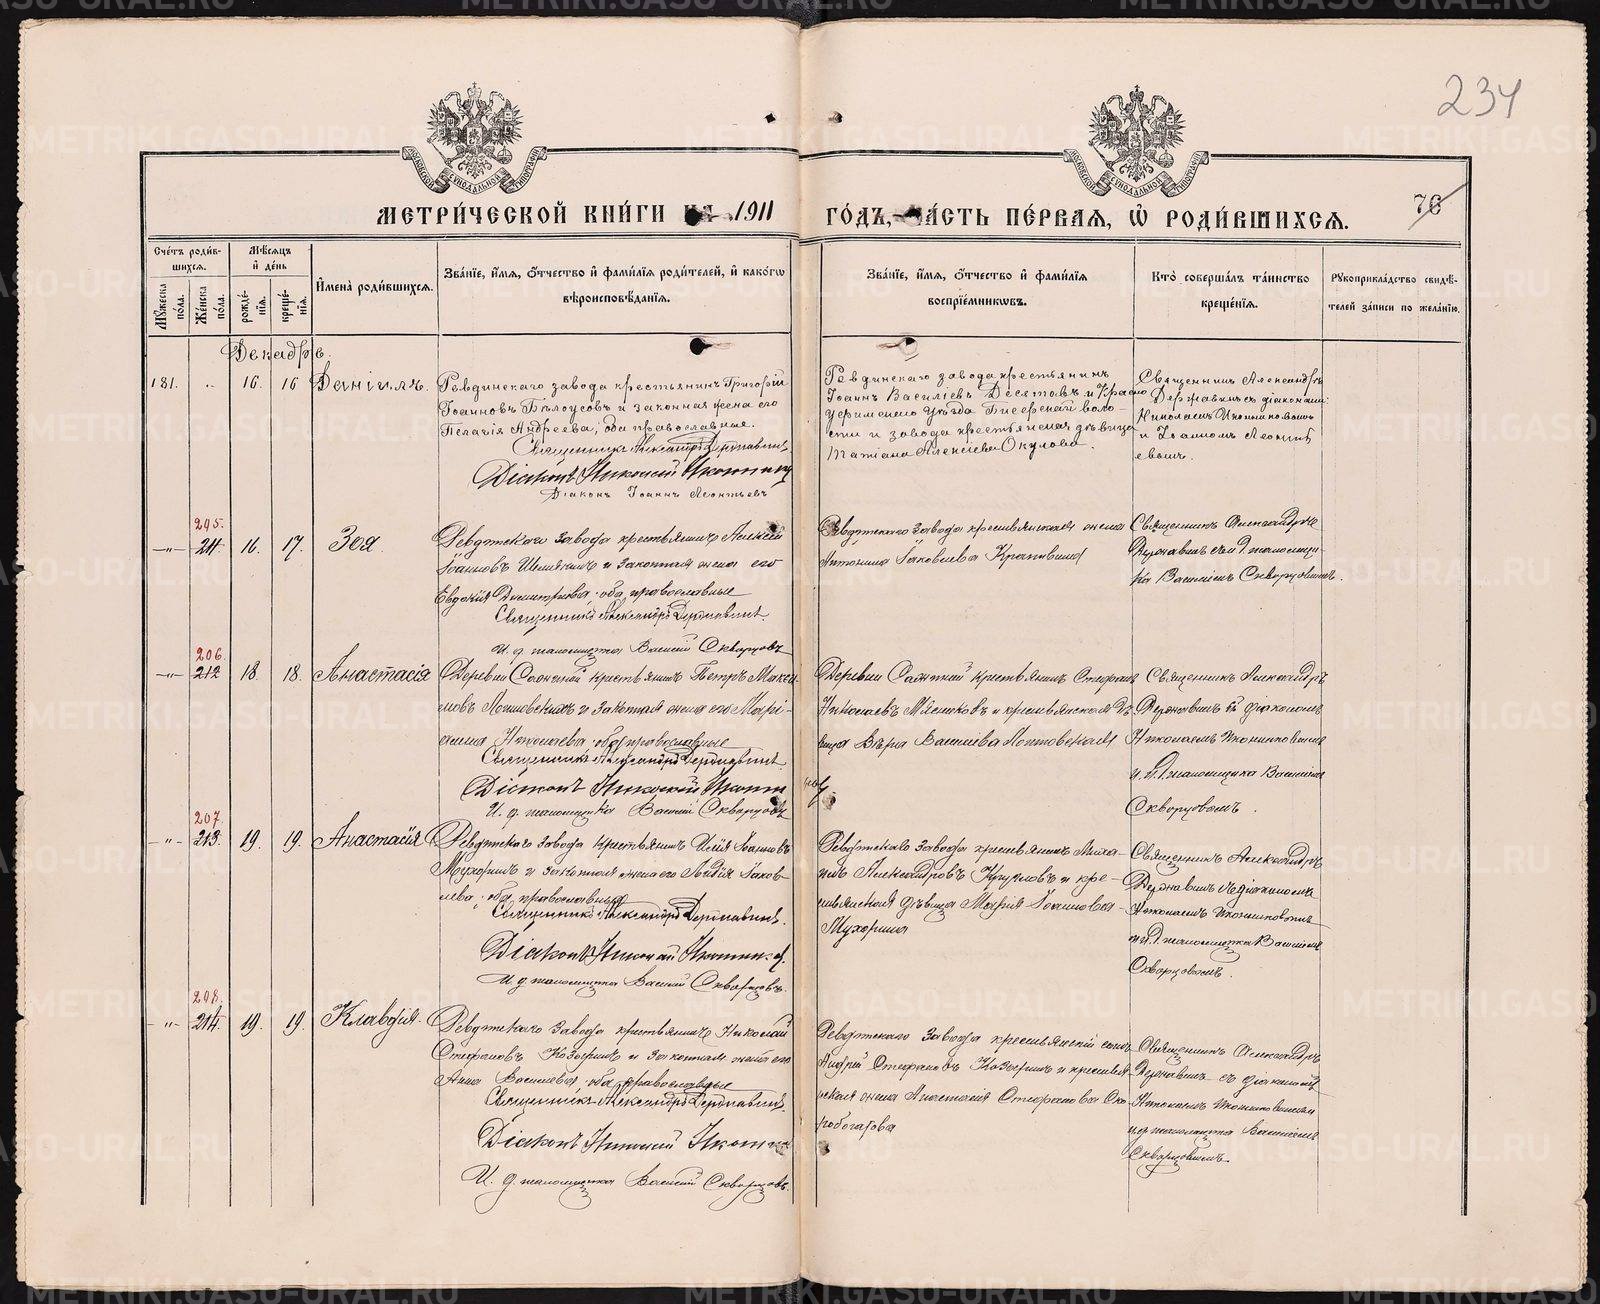 234
МОСКОВСКОЙ СѴНОДАЛЬНОЙ ТИПОГРАФІИ
МОСКОВСКОЙ СѴНОДАЛЬНОЙ ТИПОГРАФІИ
МЕТРИ́ЧЕСКОЙ КНИ́ГИ НА 1911
ГО́ДЪ, ЧА́СТЬ ПЕ́РВАЯ, Ѡ҆ РОДИ́ВШИХСЯ.
76
Сче́тъ роди́в-
шихся.
Му́жеска по́ла.
Же́нска по́ла.
Мѣ́сяцъ
и҆ де́нь
рожде́нїя.
креще́нїя.
И҆мена̀ роди́вшихся.
Зва́нїе, и҆́мя, ѻ҆́тчество и҆ фами́лїя роди́телей, и҆ како́гѡ
вѣроисповѣ́данїя.
Зва́нїе, и҆́мя, ѻ҆́тчество и҆ фами́лїя
воспрїе́мникѡвъ.
Кто̀ соверша́лъ та́инство
креще́нїя.
Рукоприкла́дство свидѣ́-
телей за́писи по жела́нїю.
Декабрь.
181. „ 16. 16 Даніилъ.
Ревдинскаго завода крестьянинъ Григорій
Іоанновъ Бѣлоусовъ и законная жена его
Пелагія Андреева, оба православные.
Священникъ Александръ Державинъ
Діаконъ Николай
Діаконъ Іоаннъ Леонтьевъ
Ревдинскаго завода крестьянинъ
Іоаннъ Василіевъ Десятовъ и Красно
уфимскаго уѣзда Бисерской воло-
сти и завода крестьянская дѣвица
Татіана Алексіева Окулова.
Священникъ Александръ
Державинъ съ діаконами
Николаемъ Иконниковымъ
и Іоанномъ Леонть
евымъ.
205.
—„— 211 16. 17. Зоя.
Ревдинскаго завода крестьянинъ Алексѣй
Іоанновъ и законная жена его
Евдокія Димитріева, оба православные
Священникъ Александръ Державинъ.
И. д. псаломщика Василій Скворцовъ
Ревдинскаго завода крестьянская жена
Антонина Іаковлева
Священникъ Александръ
Державинъ съ и. д. псаломщи-
ка Василіемъ Скворцовымъ.
206.
—„— 212 18. 18. Анастасія
Деревни крестьянинъ Петръ Макси
мовъ и законная жена его Марі-
анна Николаева, оба православные
Священникъ Александръ Державинъ.
Діаконъ Николай
И. д. псаломщика Василій Скворцовъ
Деревни крестьянинъ Стефанъ
Николаевъ Мясниковъ и крестьянская дѣ-
вица Вѣра Василіева
Священникъ Александръ
Державинъ съ діакономъ
Николаемъ Иконниковымъ
и и. д. псаломщика Василіемъ
Скворцовымъ.
207.
—„— 213. 19. 19. Анастасія
Ревдинскаго завода крестьянинъ Илія Іоанновъ
Мухоринъ и законная жена его Лидія Іаков-
лева, оба православные
Священникъ Александръ Державинъ.
Діаконъ Николай
И. д. псаломщика Василій Скворцовъ.
Ревдинскаго завода крестьянинъ Миха-
илъ Александровъ и кре-
стьянская дѣвица Марія Іоаннова
Мухорина
Священникъ Александръ
Державинъ съ діакономъ
Николаемъ Иконниковымъ
и и. д. псаломщика Василіемъ
Скворцовымъ.
208.
—„— 214. 19. 19. Клавдія.
Ревдинскаго завода крестьянинъ Николай
Стефановъ Козыринъ и законная жена его
Анна Василіева, оба православные
Священникъ Александръ Державинъ.
Діаконъ Николай
И. д. псаломщика Василій Скворцовъ.
Ревдинскаго завода крестьянскій сынъ
Андрей Стефановъ Козыринъ и крестьян-
ская жена Анастасія Стефанова Ско-
робогатова
Священникъ Александръ
Державинъ съ діакономъ
Николаемъ Иконниковымъ
и. д. псаломщика Василіемъ
Скворцовымъ.
METRIKI.GASO-URAL.RU